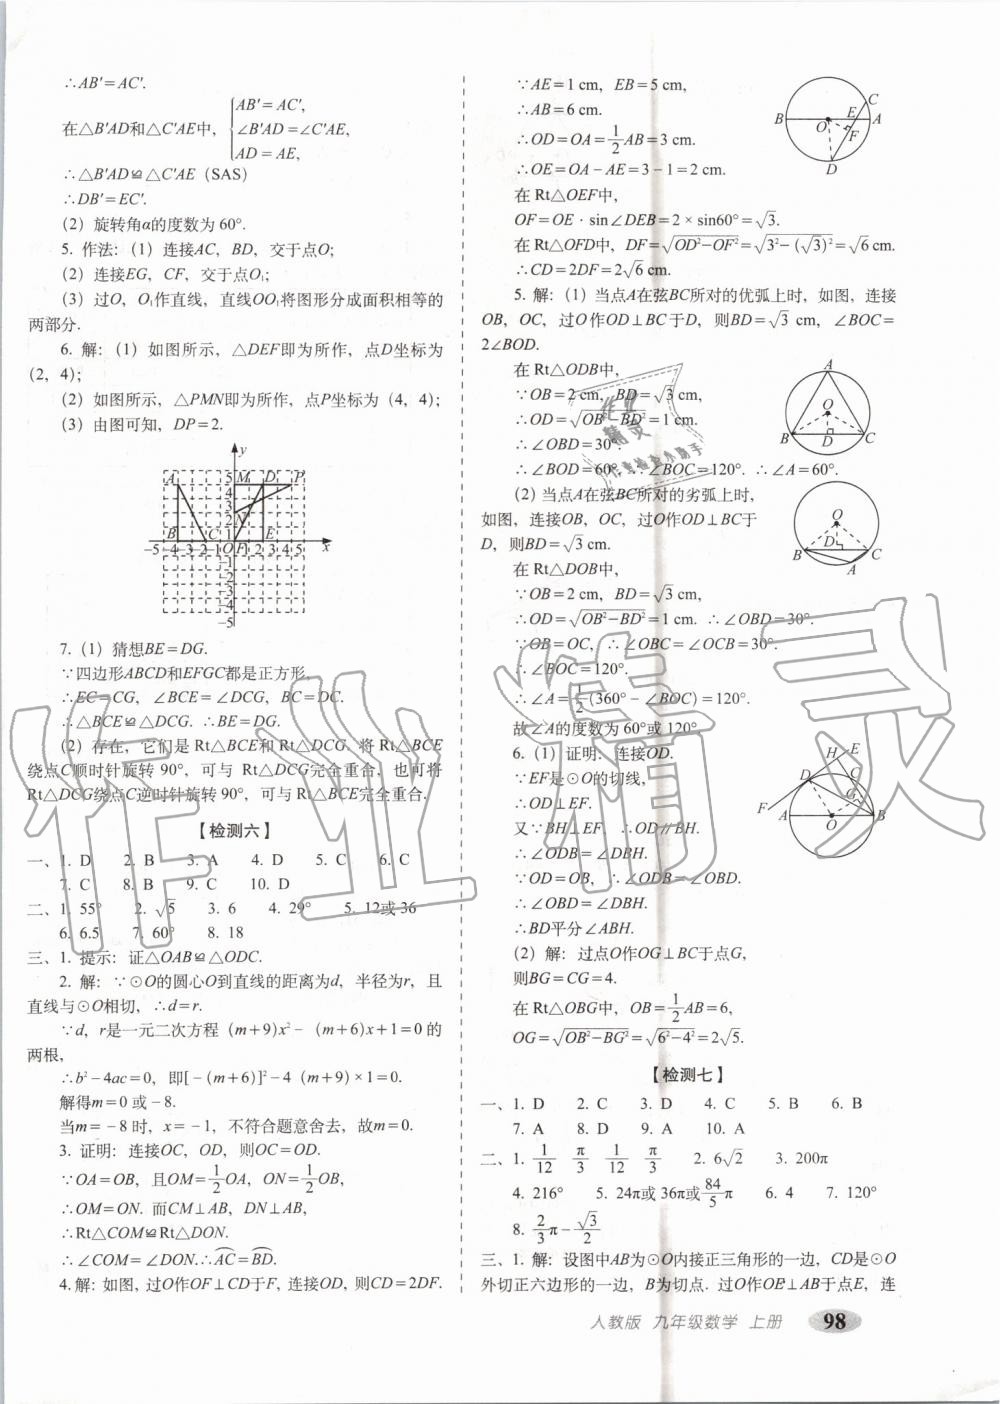 ∴AB′=AC′.
在△B′AD和△C′AE中,
AB′=AC′,
∠B′AD=∠C′AE,
AD=AE,
∴△B′AD≌△C′AE(SAS)
∴DB′=EC′.
(2)旋转角α的度数为60°.
5. 作法:(1)连接AC,BD,交于点O;
(2)连接EG,CF,交于点O₁;
(3)过O,O₁作直线,直线OO₁将图形分成面积相等的
两部分.
6. 解:(1)如图所示,△DEF即为所作,点D坐标为
(2,4);
(2)如图所示,△PMN即为所作,点P坐标为(4,4);
(3)由图可知,DP=2.
y
A 5 M D P
4
3
2 N
B C 1 E
-5-4-3-2-1 O F 1 2 3 4 5 x
-1
-2
-3
-4
-5
7.(1)猜想BE=DG.
∵四边形ABCD和EFGC都是正方形,
∴EC=CG,∠BCE=∠DCG,BC=DC.
∴△BCE≌△DCG.∴BE=DG.
(2)存在,它们是Rt△BCE和Rt△DCG.将Rt△BCE
绕点C顺时针旋转90°,可与Rt△DCG完全重合,也可将
Rt△DCG绕点C逆时针旋转90°,可与Rt△BCE完全重合.
【检测六】
一、1. D 2. B 3. A 4. D 5. C 6. C
7. C 8. B 9. C 10. D
二、1. 55° 2. √5 3. 6 4. 29° 5. 12或36
6. 6.5 7. 60° 8. 18
三、1. 提示:证△OAB≌△ODC.
2. 解:∵⊙O的圆心O到直线的距离为d,半径为r,且
直线与⊙O相切,∴d=r.
∵d,r是一元二次方程(m+9)x²-(m+6)x+1=0的
两根,
∴b²-4ac=0,即[-(m+6)]²-4(m+9)×1=0.
解得m=0或-8.
当m=-8时,x=-1,不符合题意舍去,故m=0.
3. 证明:连接OC,OD,则OC=OD.
∵OA=OB,且OM=1/2OA,ON=1/2OB,
∴OM=ON.而CM⊥AB,DN⊥AB,
∴Rt△COM≌Rt△DON.
∴∠COM=∠DON.∴AC⌒=BD⌒.
4.解:如图,过O作OF⊥CD于F,连接OD,则CD=2DF.
∵AE=1 cm,EB=5 cm,
∴AB=6 cm.
∴OD=OA=1/2AB=3 cm.
∴OE=OA-AE=3-1=2 cm.
在Rt△OEF中,
OF=OE·sin∠DEB=2×sin60°=√3.
在Rt△OFD中,DF=√(OD²-OF²)=√(3²-(√3)²)=√6 cm.
∴CD=2DF=2√6 cm.
B O E C A F D
5. 解:(1)当点A在弦BC所对的优弧上时,如图,连接
OB,OC,过O作OD⊥BC于D,则BD=√3 cm,∠BOC=
2∠BOD.
在Rt△ODB中,
∵OB=2 cm,BD=√3 cm,
∴OD=√(OB²-BD²)=1 cm.
∴∠OBD=30°.
∴∠BOD=60°.∴∠BOC=120°.∴∠A=60°.
A O B D C
(2)当点A在弦BC所对的劣弧上时,
如图,连接OB,OC,过O作OD⊥BC于
D,则BD=√3 cm.
在Rt△DOB中,
∵OB=2 cm,BD=√3 cm,
∴OD=√(OB²-BD²)=1 cm.∴∠OBD=30°.
∵OB=OC,∴∠OBC=∠OCB=30°.
∴∠BOC=120°.
∴∠A=1/2(360°-∠BOC)=120°.
故∠A的度数为60°或120°.
O B D C A
6.(1)证明:连接OD.
∵EF是⊙O的切线,
∴OD⊥EF.
又∵BH⊥EF,∴OD∥BH.
∴∠ODB=∠DBH.
∵OD=OB,∴∠ODB=∠OBD.
∴∠OBD=∠DBH.
∴BD平分∠ABH.
H E D C F G A O B
(2)解:过点O作OG⊥BC于点G,
则BG=CG=4.
在Rt△OBG中,OB=1/2AB=6,
OG=√(OB²-BG²)=√(6²-4²)=2√5.
【检测七】
一、1. D 2. C 3. D 4. C 5. B 6. B
7. A 8. D 9. A 10. A
二、1. 1/12 π/3 1/12 π/3 2. 6√2 3. 200π
4. 216° 5. 24π或36π或84/5π 6. 4 7. 120°
8. 2/3π-√3/2
三、1. 解:设图中AB为⊙O内接正三角形的一边,CD是⊙O
外切正六边形的一边,B为切点.过O作OE⊥AB于点E,连
人教版 九年级数学 上册 98
作业精灵
作业精灵